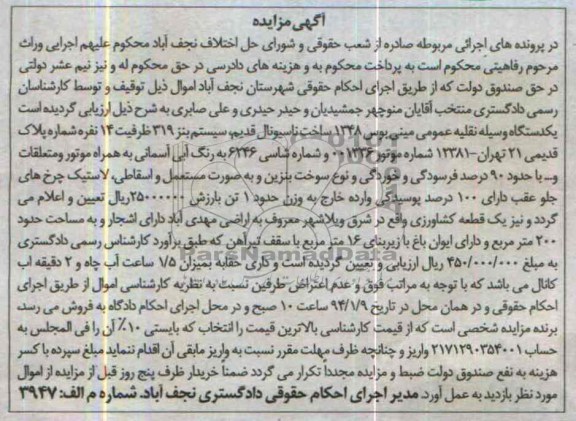 آگهی مزایده
در پرونده های اجرائی مربوطه صادره از شعب حقوقی و شورای حل اختلاف نجف آباد محکوم علیهم اجرایی وراث
مرحوم رفاهیتی محکوم است به پرداخت محکوم به و هزینه های دادرسی در حق محکوم له و نیز نیم عشر دولتی
در حق صندوق دولت که از طریق اجرای احکام حقوقی شهرستان نجف آباد اموال ذیل توقیف و توسط کارشناسان
رسمی دادگستری منتخب آقایان منوچهر جمشیدیان و حیدر حیدری و علی صابری به شرح ذیل ارزیابی گردیده است
یکدستگاه وسیله نقلیه عمومی مینی بوس ۱۳۴۸ ساخت ناسیونال قدیم، سیستم بنز ۳۱۹ ظرفیت ۱۴ نفره شماره پلاک
قدیمی ۲۱ تهران –۱۲۳۸۱ شماره موتور ۱۱۳۳۶ و شماره شاسی ۶۲۴۶ به رنگ آبی آسمانی به همراه موتور ومتعلقات
و... با حدود ۹۰ درصد فرسودگی و خوردگی و نوع سوخت بنزین و به صورت مستعمل و اسقاطی، لاستیک چرخ های
جلو عقب دارای ۱۰۰ درصد پوسیدگی وارده خارج به وزن حدود ۱ تن بارزش ۲۵۰۰۰۰۰۰ ریال تعیین و اعلام می
گردد و نیز یک قطعه کشاورزی واقع در شرق ویلاشهر معروف به اراضی مهدی آباد دارای اشجار و به مساحت حدود
۲۰۰ متر مربع و دارای ایوان باغ با زیربنای ۱۶ متر مربع با سقف تیرآهن که طبق برآورد کارشناس رسمی دادگستری
به مبلغ ۴۵۰/۰۰۰/۰۰۰ ریال ارزیابی و تعیین گردیده است و داری حقابه بمیزان ۱/۵ ساعت آب چاه و ۲ دقیقه اب
کانال می باشد که با توجه به مراتب فوق و عدم اعتراض طرفین نسبت به نظریه کارشناسی اموال از طریق اجرای
احکام حقوقی و در همان محل در تاریخ ۹۴/۱/۹ ساعت ۱۰ صبح و در محل اجرای احکام دادگاه به فروش می رسد،
برنده مزایده شخصی است که از قیمت کارشناسی بالاترین قیمت را انتخاب که بایستی ۱۰٪ آن را فی المجلس به
حساب ۲۱۷۱۲۹۰۳۵۴۰۰۱ واریز و چنانچه ظرف مهلت مقرر نسبت به واریز مابقی آن اقدام ننماید مبلغ سپرده با کسر
هزینه به نفع صندوق دولت ضبط و مزایده مجددا تکرار می گردد ضمنا خریدار ظرف پنج روز قبل از مزایده از اموال
مورد نظر بازدید به عمل آورد. مدیر اجرای احکام حقوقی دادگستری نجف آباد. شماره م الف: ۳۹۴۷
ParsNamadData